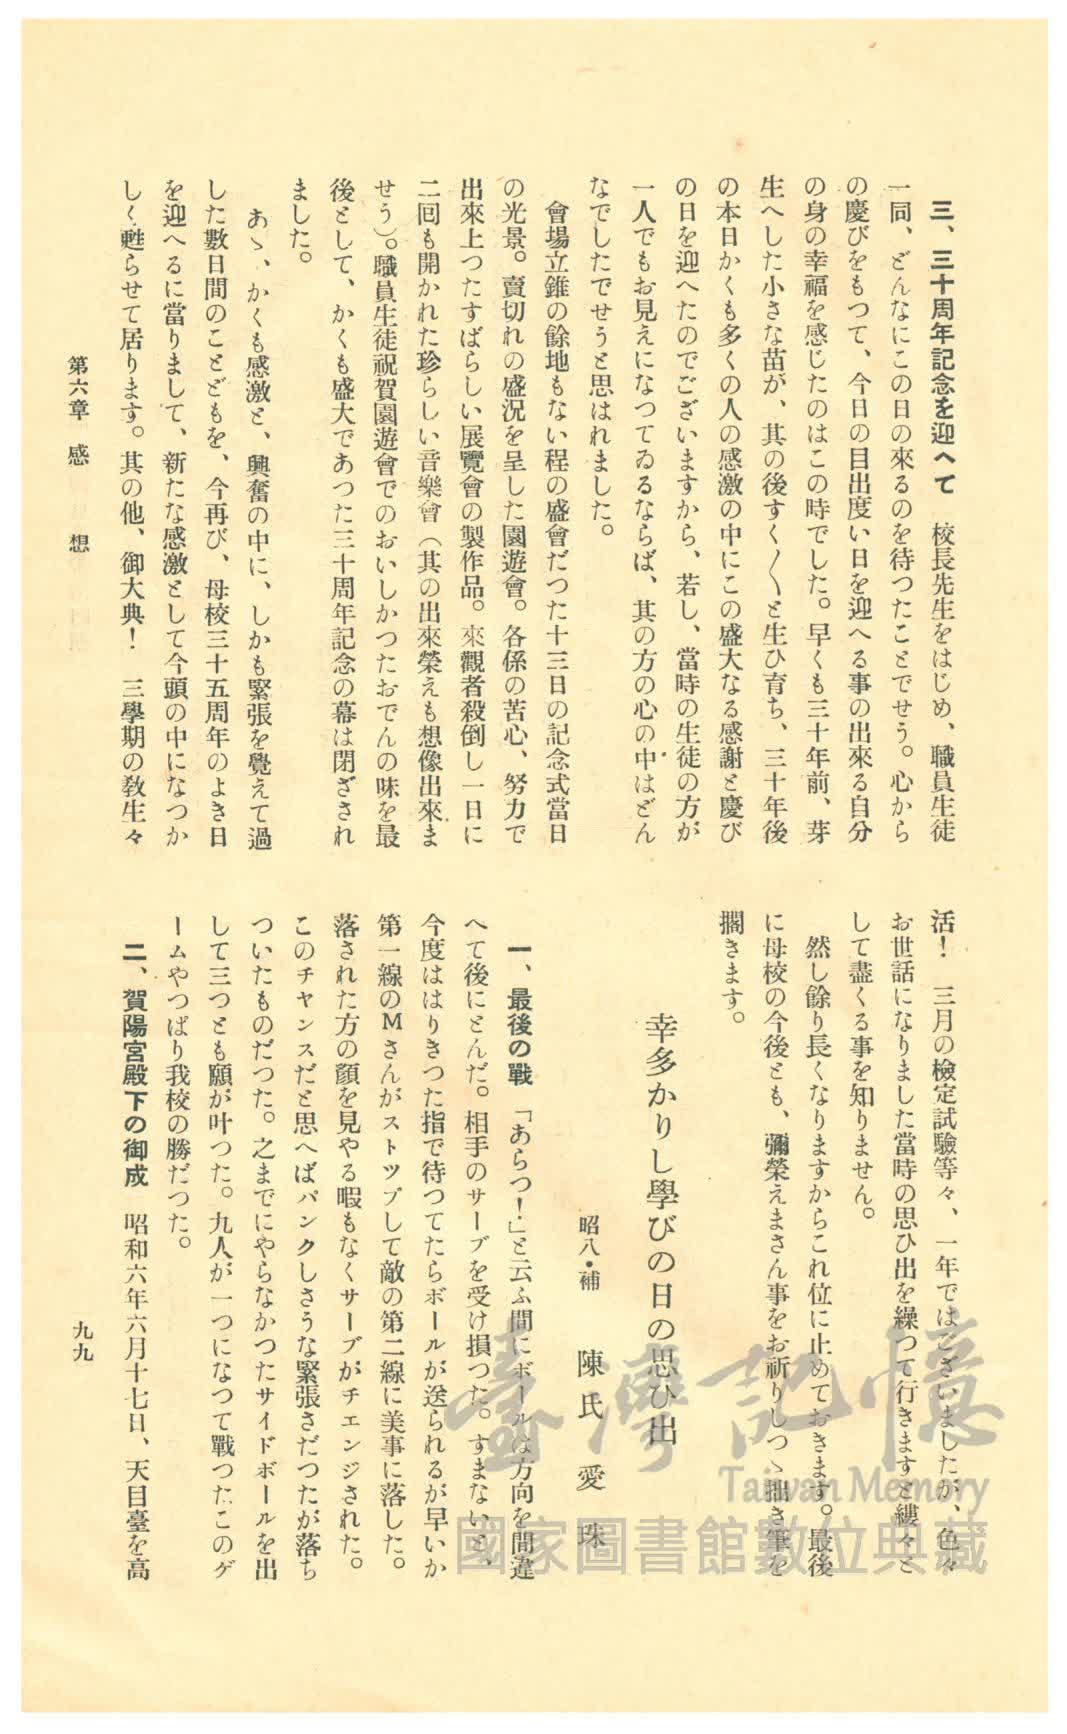 三、三十周年記念を迎へて　校長先生をはじめ、職員生徒
一同、どんなにこの日の来るのを待つたことでせう。心から
の慶びをもつて、今日の目出度い日を迎へる事の出來る自分
の身の幸福を感じたのはこの時でした。早くも三十年前、芽
生へした小さな苗が、其の後すく〱と生ひ育ち、三十年後
の本日かくも多くの人の感激の中にこの盛大なる感謝と慶び
の日を迎へたのでございますから、若し、當時の生徒の方が
一人でもお見えになつてゐるならば、其の方の心の中はどん
なでしたでせうと思はれました。
會場立錐の餘地もない程の盛會だつた十三日の記念式當日
の光景。賣切れの盛況を呈した園遊會。各係の苦心、努力で
出來上つたすばらしい展覽會の製作品。來觀者殺倒し一日に
二囘も開かれた珍らしい音樂會（其の出來榮えも想像出來ま
せう）。職員生徒祝賀園遊會でのおいしかつたおでんの味を最
後として、かくも盛大であつた三十周年記念の幕は閉ざされ
ました。
あゝ、かくも感激と、興奮の中に、しかも緊張を覺えて過
した數日間のことどもを、今再び、母校三十五周年のよき日
を迎へるに當りまして、新たな感激として今頭の中になつか
しく甦らせて居ります。其の他、御大典！　三學期の敎生々
活！　三月の檢定試驗等々、一年ではございましたが、色々
お世話になりました當時の思ひ出を繰つて行きますと縷々と
して盡くる事を知りません。
然し餘り長くなりますからこれ位に止めておきます。最後
に母校の今後とも、彌榮えまさん事をお祈りしつゝ拙き筆を
擱きます。
幸多かりし學びの日の思ひ出
昭八・補　陳氏愛珠
一、最後の戰　「あらつ！」と云ふ間にボールは方向を間違
へて後にとんだ。相手のサーブを受け損つた。すまないと、
今度ははりきつた指で待つてたらボールが送られるが早いか
第一線のMさんがストツプして敵の第二線に美事に落した。
落された方の顔を見やる暇もなくサーブがチエンジされた。
このチヤンスだと思へばパンクしさうな緊張さだつたが落ち
ついたものだつた。之までにやらなかつたサイドボールを出
して三つとも願が叶つた。九人が一つになつて戰つたこのゲ
ームやつぱり我校の勝だつた。
二、賀陽宮殿下の御成　昭和六年六月十七日、天目臺を高
第六章　感想
九九
臺灣記憶
Taiwan Memory
國家圖書館數位典藏